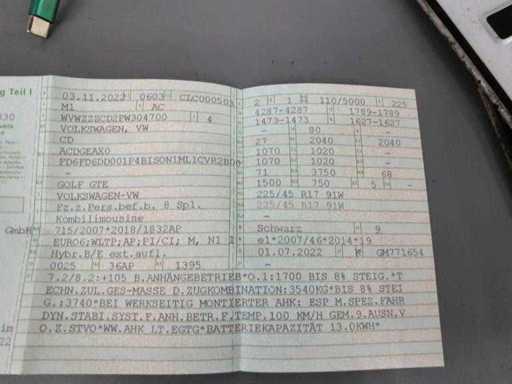 g Teil I
03.11.2022 0603 CLC000503
M1 AC
WVWZZZCDZPW304700 4
VOLKSWAGEN, VW
CD
ACDGEAX0
–
GOLF GTE
VOLKSWAGEN-VW
Fz.z.Pers.bef.b. 8 Spl.
Kombilimousine
GmbH 715/2007*2018/1832AP
EURO6;WLTP;AP;PI/CI; M, N1 I
Hybr.B/E ext.aufl.
0025 36AP 1395
2 1 110/5000 225
4287-4287 1789-1789
1473-1473 1627-1627
– 80 –
27 2040 2040
1070 1020 –
1070 1020 –
71 3750 68
1500 750 5 –
225/45 R17 91W
225/45 R17 91W
–
Schwarz 9
e1*2007/46*2014*19
01.07.2022 K GM771654
7.2/8.2:+105 B.ANHÄNGEBETRIEB*O.1:1700 BIS 8% STEIG.*T
ECHN.ZUL.GES-MASSE D.ZUGKOMBINATION:3540KG*BIS 8% STEI
G.:3740*BEI WERKSEITIG MONTIERTER AHK: ESP M.SPEZ.FAHR
DYN.STABI.SYST.F.ANH.BETR.F.TEMP.100 KM/H GEM.9.AUSN.V
O.Z.STVO*WW.AHK LT.EGTG*BATTERIEKAPAZITÄT 13.0KWH*